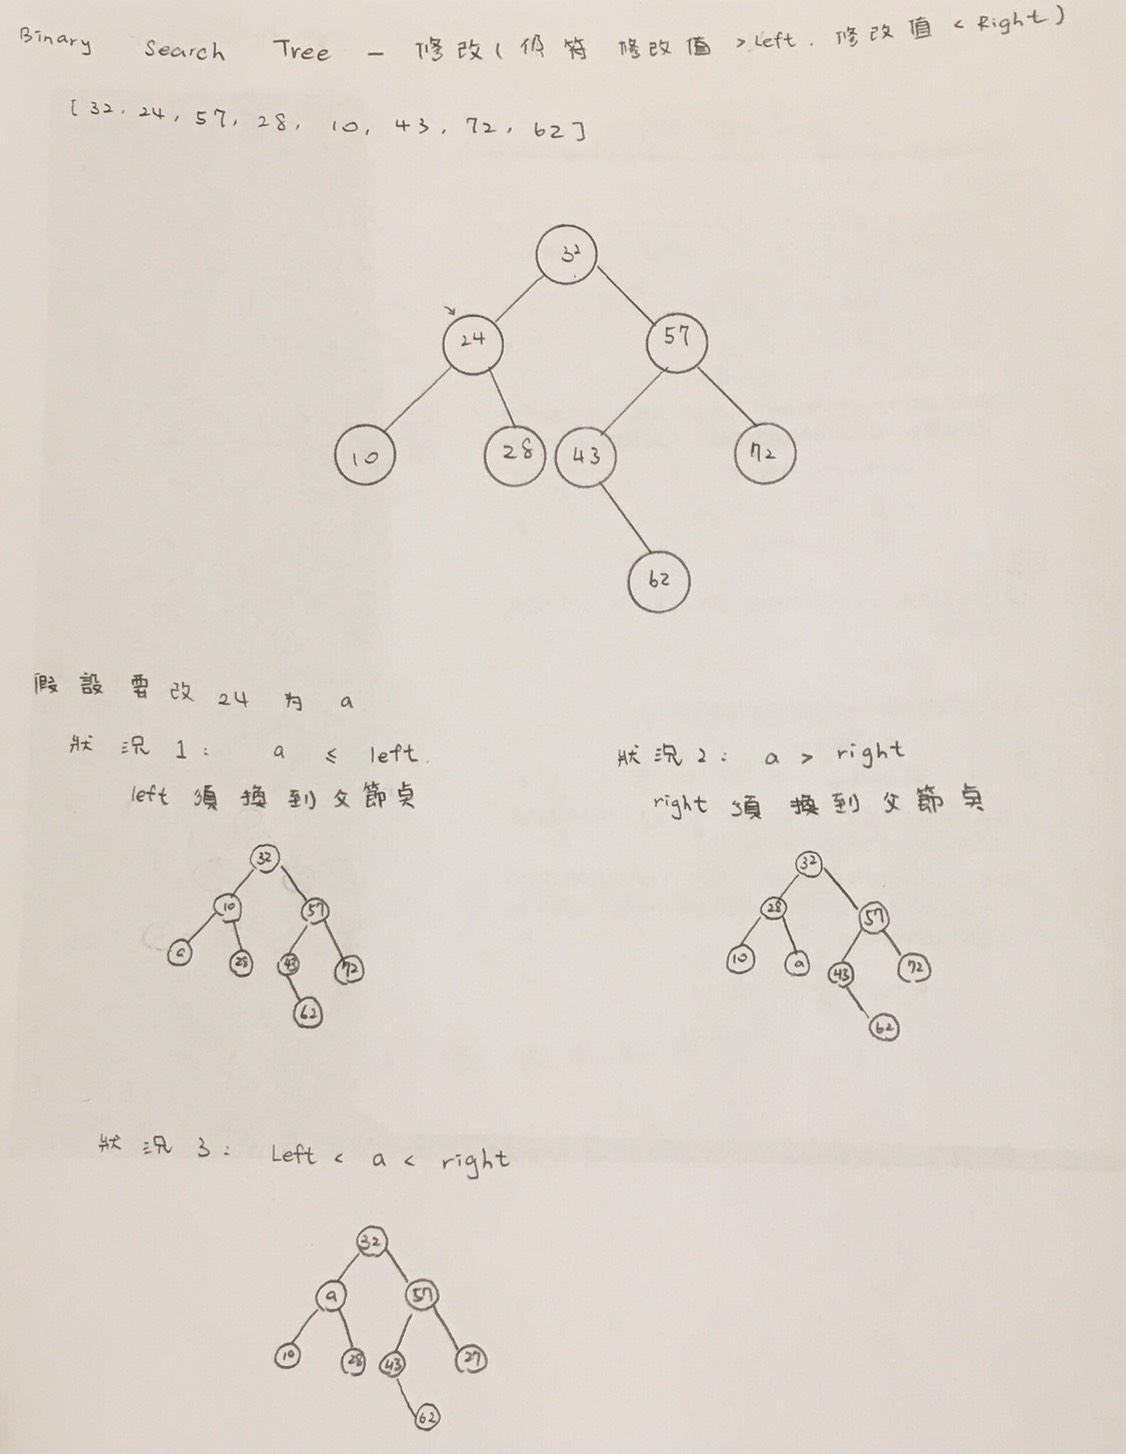 Binary Search Tree - 修改(仍符 修改值 > Left. 修改值 < Right)
[32, 24, 57, 28, 10, 43, 72, 62]
32
24 57
10 28 43 72
62
假設要改 24 為 a
狀況1: a ≤ left.
left 須換到父節點
32
10 57
a 28 43 72
62
狀況2: a > right
right 須換到父節點
32
28 57
10 a 43 72
62
狀況3: Left < a < right
32
a 57
10 28 43 27
62